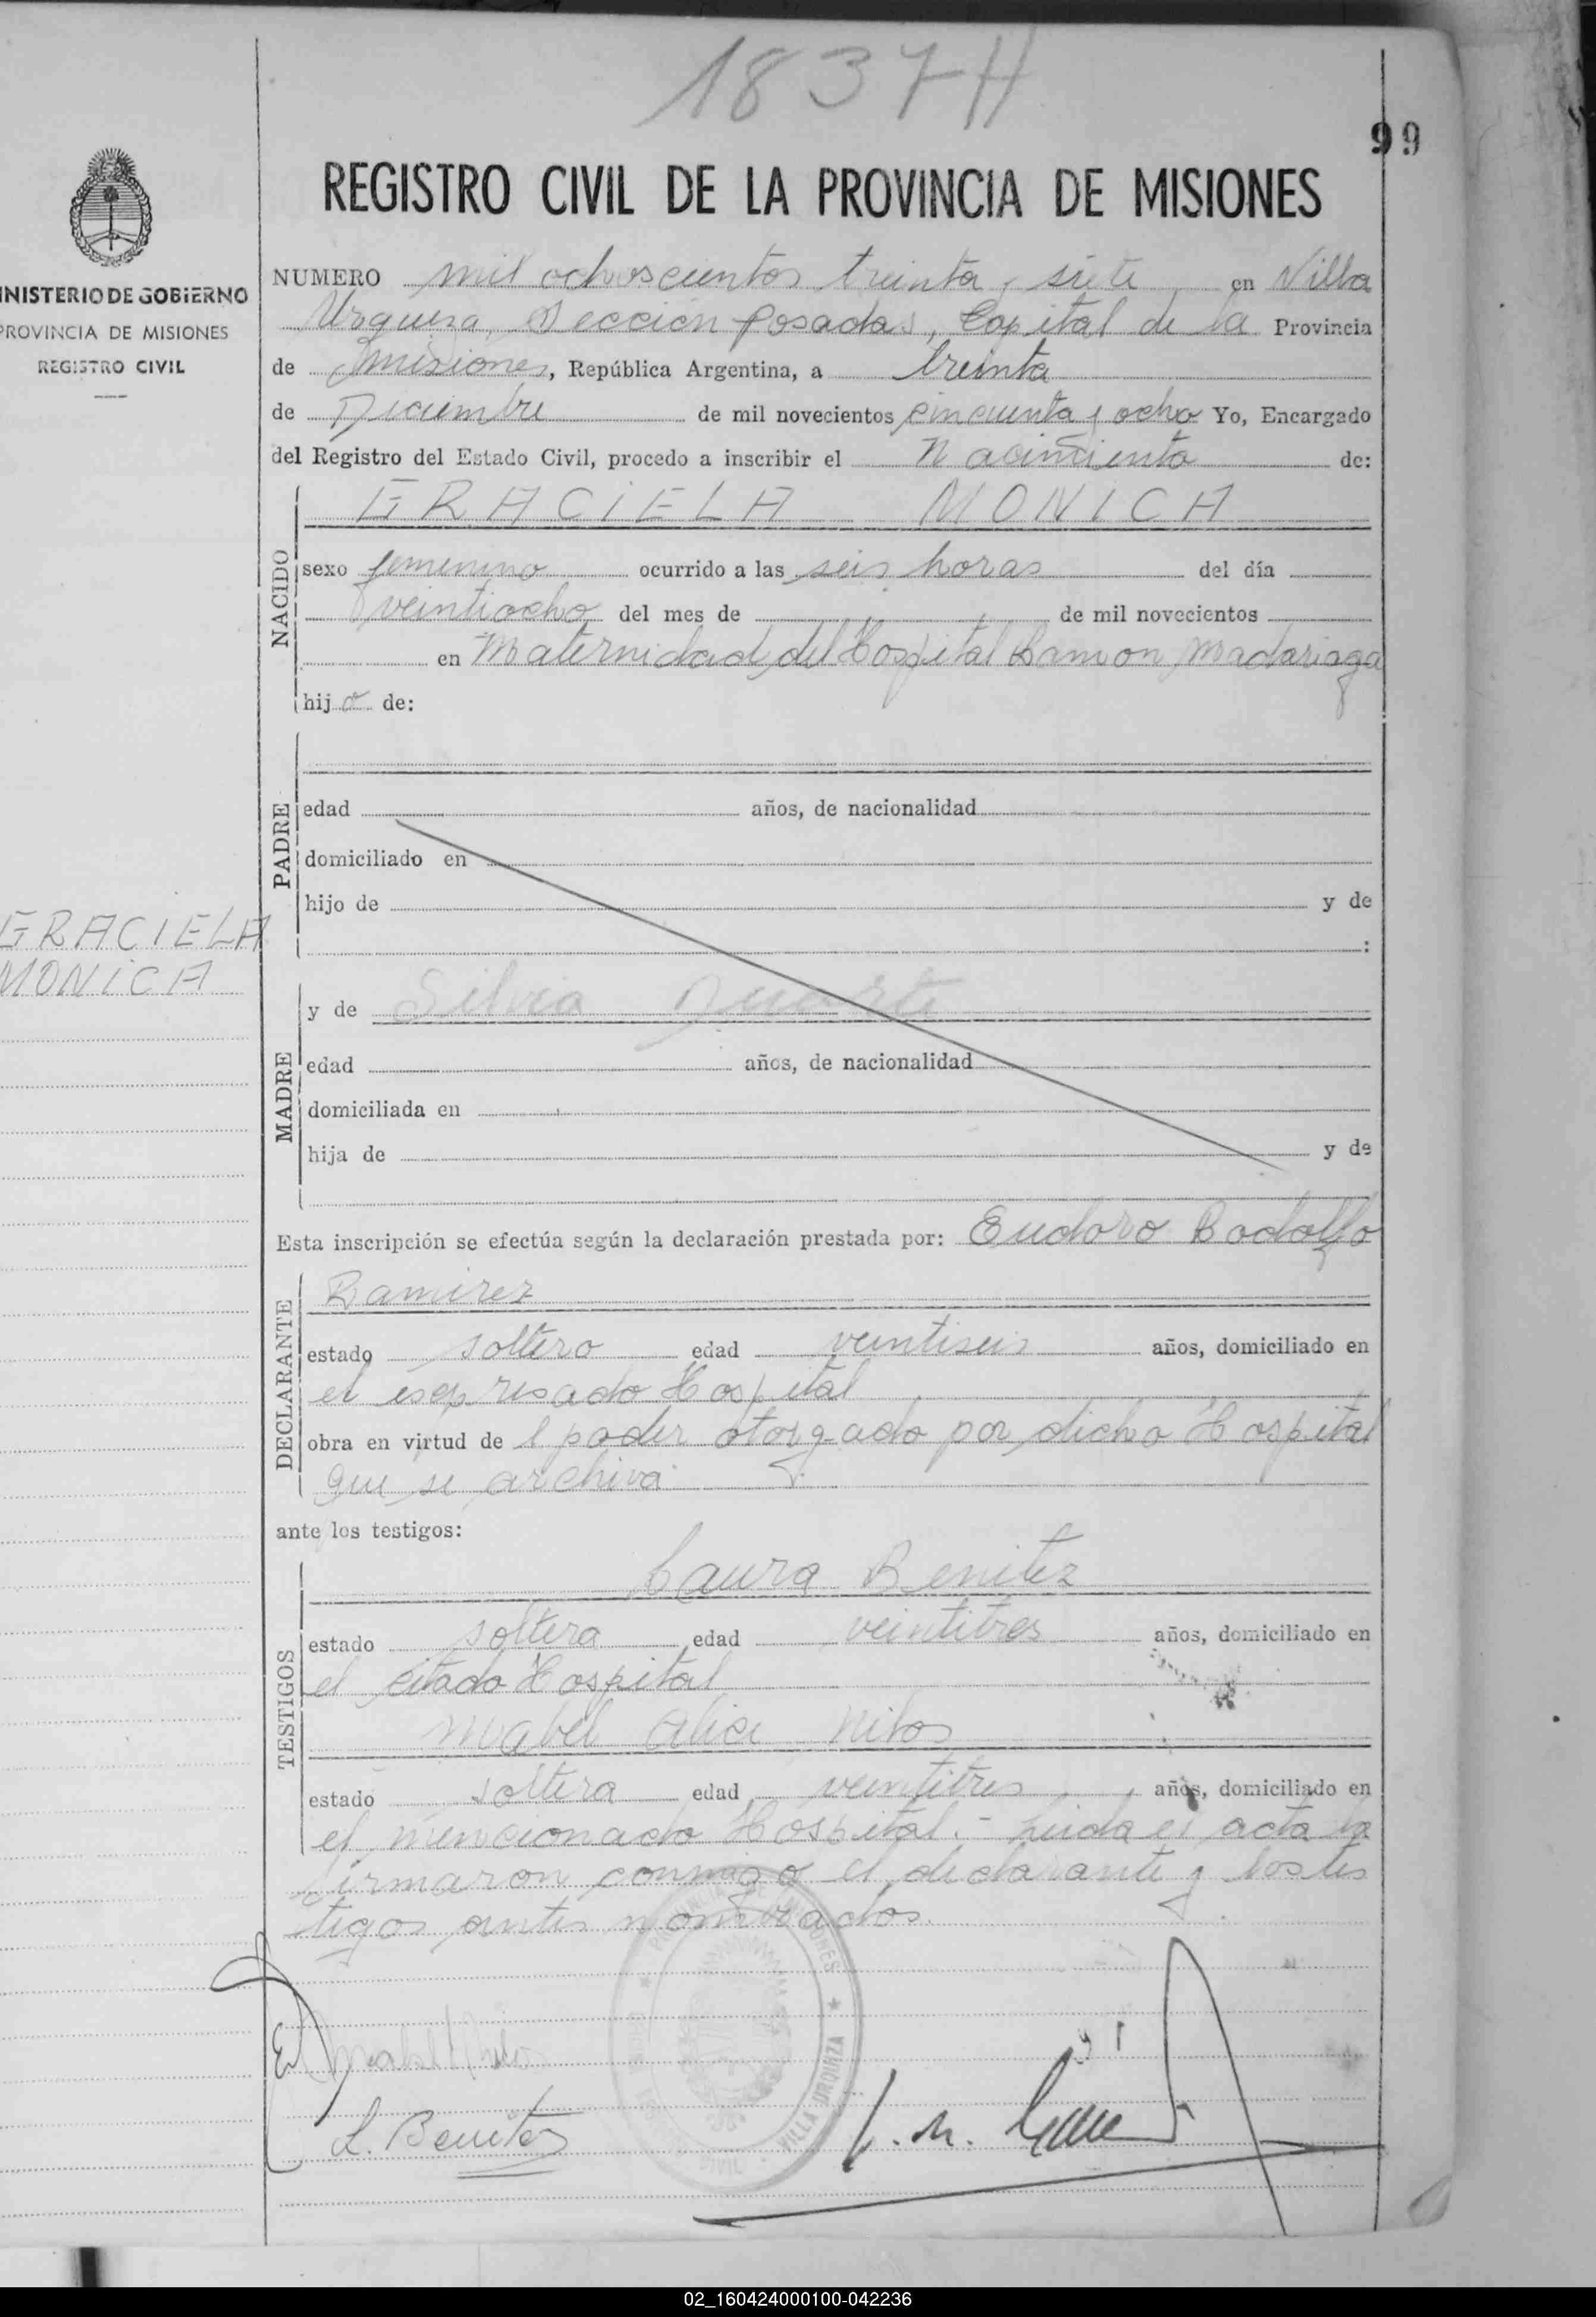 1837H
99
REGISTRO CIVIL DE LA PROVINCIA DE MISIONES
MINISTERIO DE GOBIERNO
PROVINCIA DE MISIONES
REGISTRO CIVIL
NUMERO mil ochoscientos treinta y siete en Villa
Urquiza, Sección Posadas, Capital de la Provincia
de Misiones, República Argentina, a treinta
de Diciembre de mil novecientos cincuenta y ocho Yo, Encargado
del Registro del Estado Civil, procedo a inscribir el Nacimiento de:
GRACIELA MONICA
NACIDO
sexo femenino ocurrido a las seis horas del día
veintiocho del mes de de mil novecientos
en Maternidad del Hospital Ramon Madariaga
hija de:
PADRE
edad años, de nacionalidad
domiciliado en
hijo de y de
:
GRACIELA
MONICA
MADRE
y de Silvia Duarte
edad años, de nacionalidad
domiciliada en
hija de y de
Esta inscripción se efectúa según la declaración prestada por: Eudoro Rodolfo
DECLARANTE
Ramirez
estado soltero edad veintiseis años, domiciliado en
el esepresado Hospital
obra en virtud de l poder otorgado por dicho Hospital
que se archiva
ante los testigos:
TESTIGOS
Laura Benitez
estado soltera edad veintitres años, domiciliado en
el citado Hospital
Mabel Alice
estado soltera edad veintitres años, domiciliado en
el mencionado Hospital.- Leida el acta la
firmaron conmigo el declarante y los tes
tigos antes nombrados.
VILLA URQUIZA
L. Benitez
02_160424000100-042236